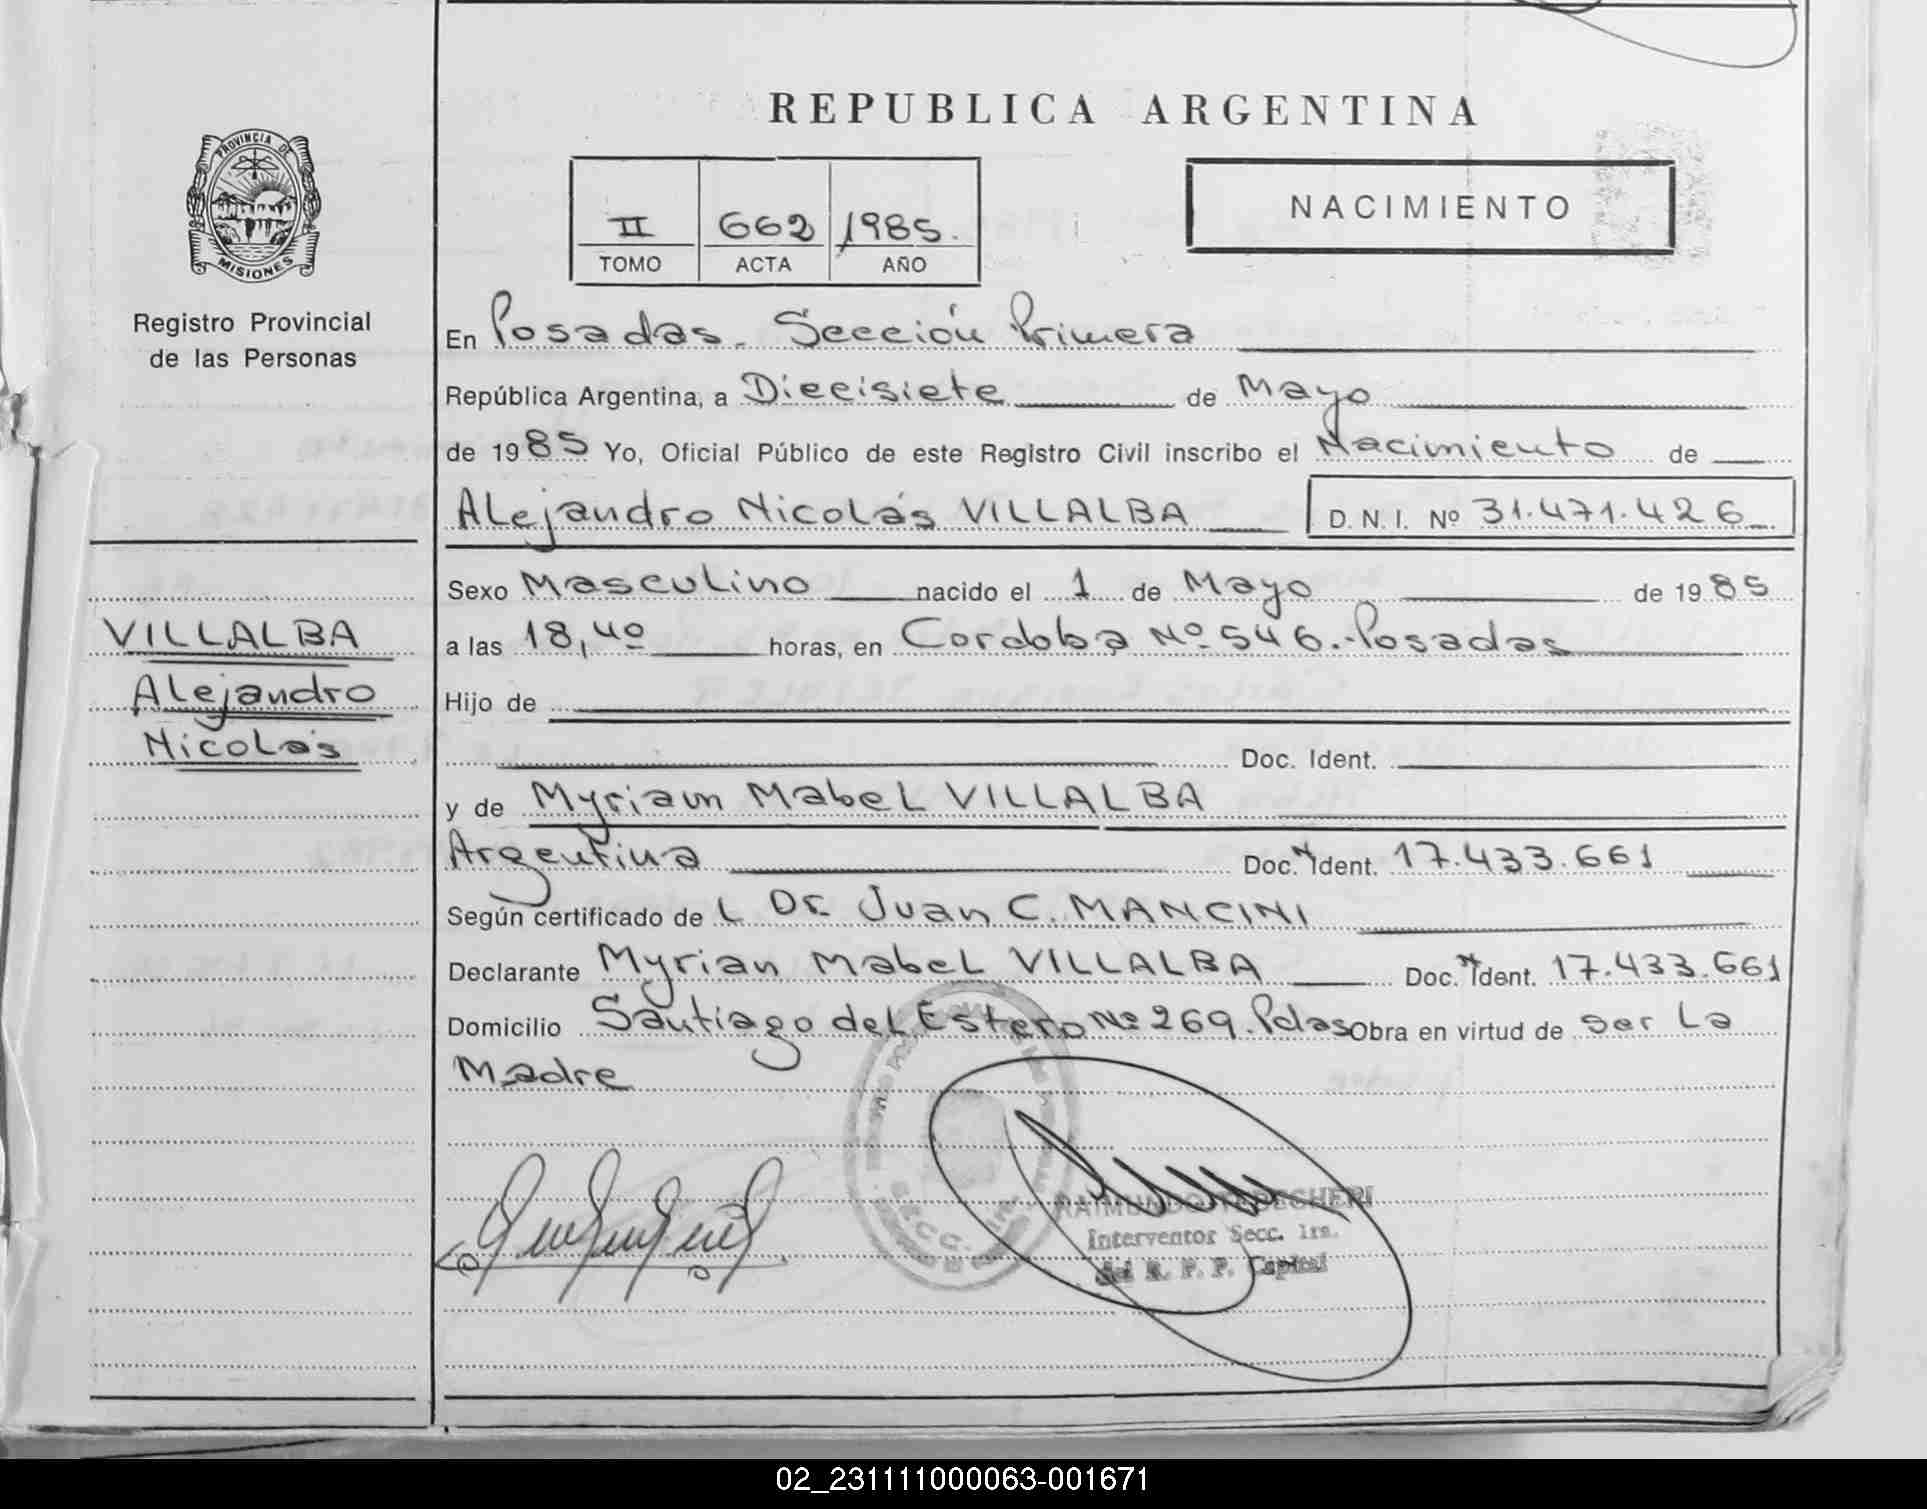 PROVINCIA DE
MISIONES
Registro Provincial
de las Personas
VILLALBA
Alejandro
Nicolás
REPUBLICA ARGENTINA
II 662 1985.
TOMO ACTA AÑO
NACIMIENTO
En Posadas. Sección Primera
República Argentina, a Diecisiete de Mayo
de 1985 Yo, Oficial Público de este Registro Civil inscribo el Nacimiento de
Alejandro Nicolás VILLALBA D. N. I. Nº 31.471.426
Sexo Masculino nacido el 1 de Mayo de 1985
a las 18,40 horas, en Cordoba Nº 546.-Posadas
Hijo de
Doc. Ident.
y de Myriam Mabel VILLALBA
Argentina Doc. Ident. 17.433.661
Según certificado de L Dr. Juan C. MANCINI
Declarante Myrian Mabel VILLALBA Doc. Ident. 17.433.661
Domicilio Santiago del Estero Nº 269. Pdas Obra en virtud de ser La
Madre
Interventor Secc. 1ra.
del R. P. P. Capital
02_231111000063-001671